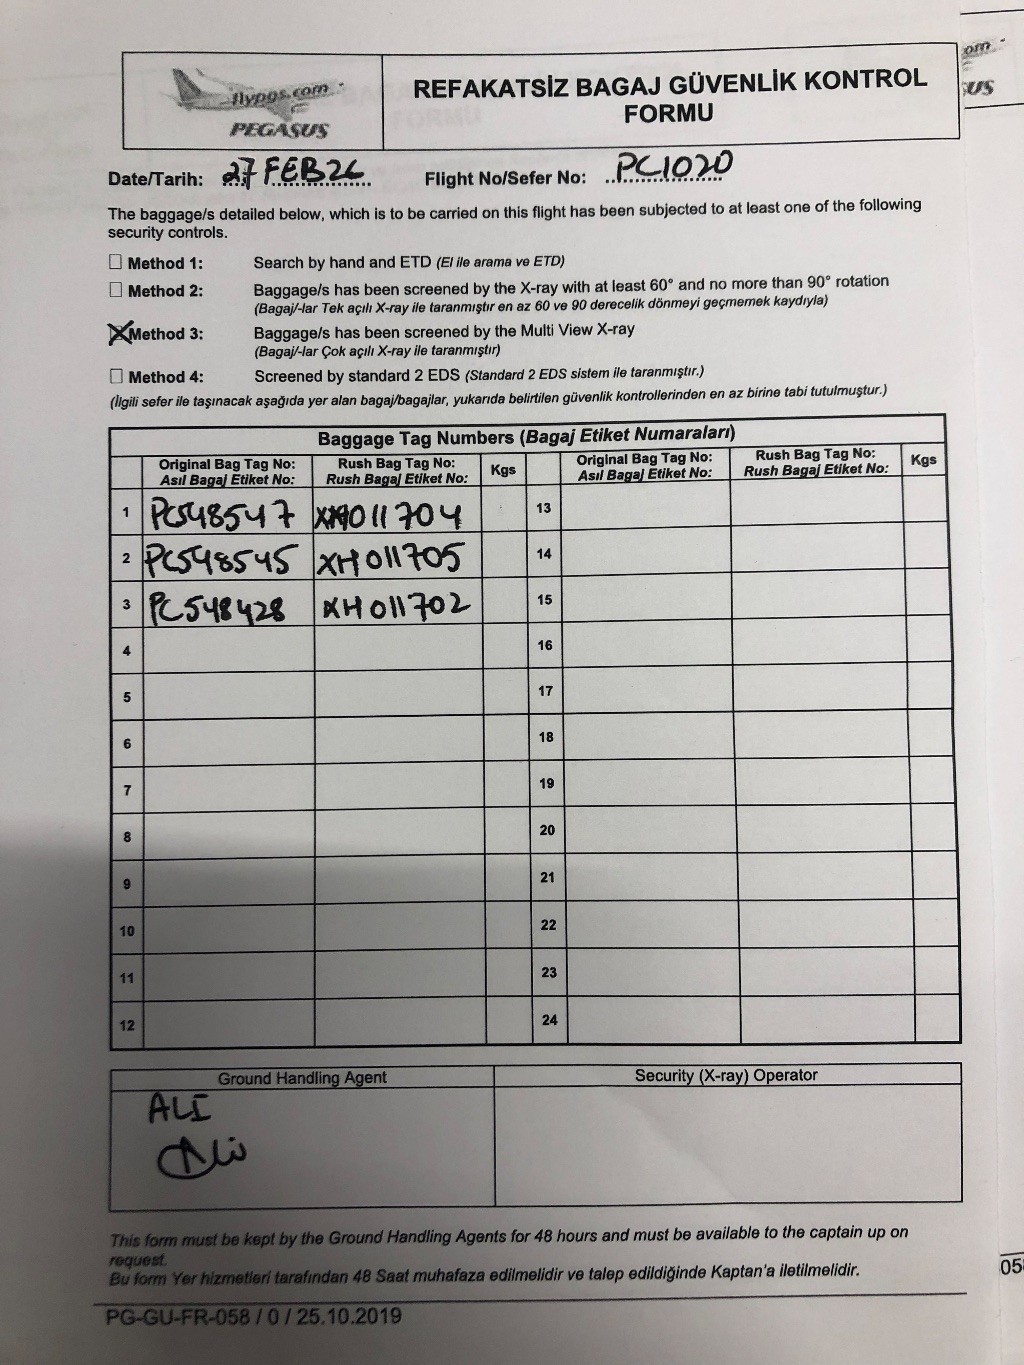 flypgs.com
PEGASUS
REFAKATSİZ BAGAJ GÜVENLİK KONTROL
FORMU
Date/Tarih: 27 FEB 26 Flight No/Sefer No: PC1020
The baggage/s detailed below, which is to be carried on this flight has been subjected to at least one of the following
security controls.
Method 1: Search by hand and ETD (El ile arama ve ETD)
Method 2: Baggage/s has been screened by the X-ray with at least 60° and no more than 90° rotation
(Bagaj/-lar Tek açılı X-ray ile taranmıştır en az 60 ve 90 derecelik dönmeyi geçmemek kaydıyla)
Method 3: Baggage/s has been screened by the Multi View X-ray
(Bagaj/-lar Çok açılı X-ray ile taranmıştır)
Method 4: Screened by standard 2 EDS (Standard 2 EDS sistem ile taranmıştır.)
(İlgili sefer ile taşınacak aşağıda yer alan bagaj/bagajlar, yukarıda belirtilen güvenlik kontrollerinden en az birine tabi tutulmuştur.)
Baggage Tag Numbers (Bagaj Etiket Numaraları)
Original Bag Tag No: Rush Bag Tag No: Kgs Original Bag Tag No: Rush Bag Tag No: Kgs
Asıl Bagaj Etiket No: Rush Bagaj Etiket No: Asıl Bagaj Etiket No: Rush Bagaj Etiket No:
1 PC548547 XH011704 13
2 PC548545 XH011705 14
3 PC548428 XH011702 15
4 16
5 17
6 18
7 19
8 20
9 21
10 22
11 23
12 24
Ground Handling Agent Security (X-ray) Operator
ALİ
Ali
This form must be kept by the Ground Handling Agents for 48 hours and must be available to the captain up on
request.
Bu form Yer hizmetleri tarafından 48 Saat muhafaza edilmelidir ve talep edildiğinde Kaptan'a iletilmelidir.
PG-GU-FR-058 / 0 / 25.10.2019